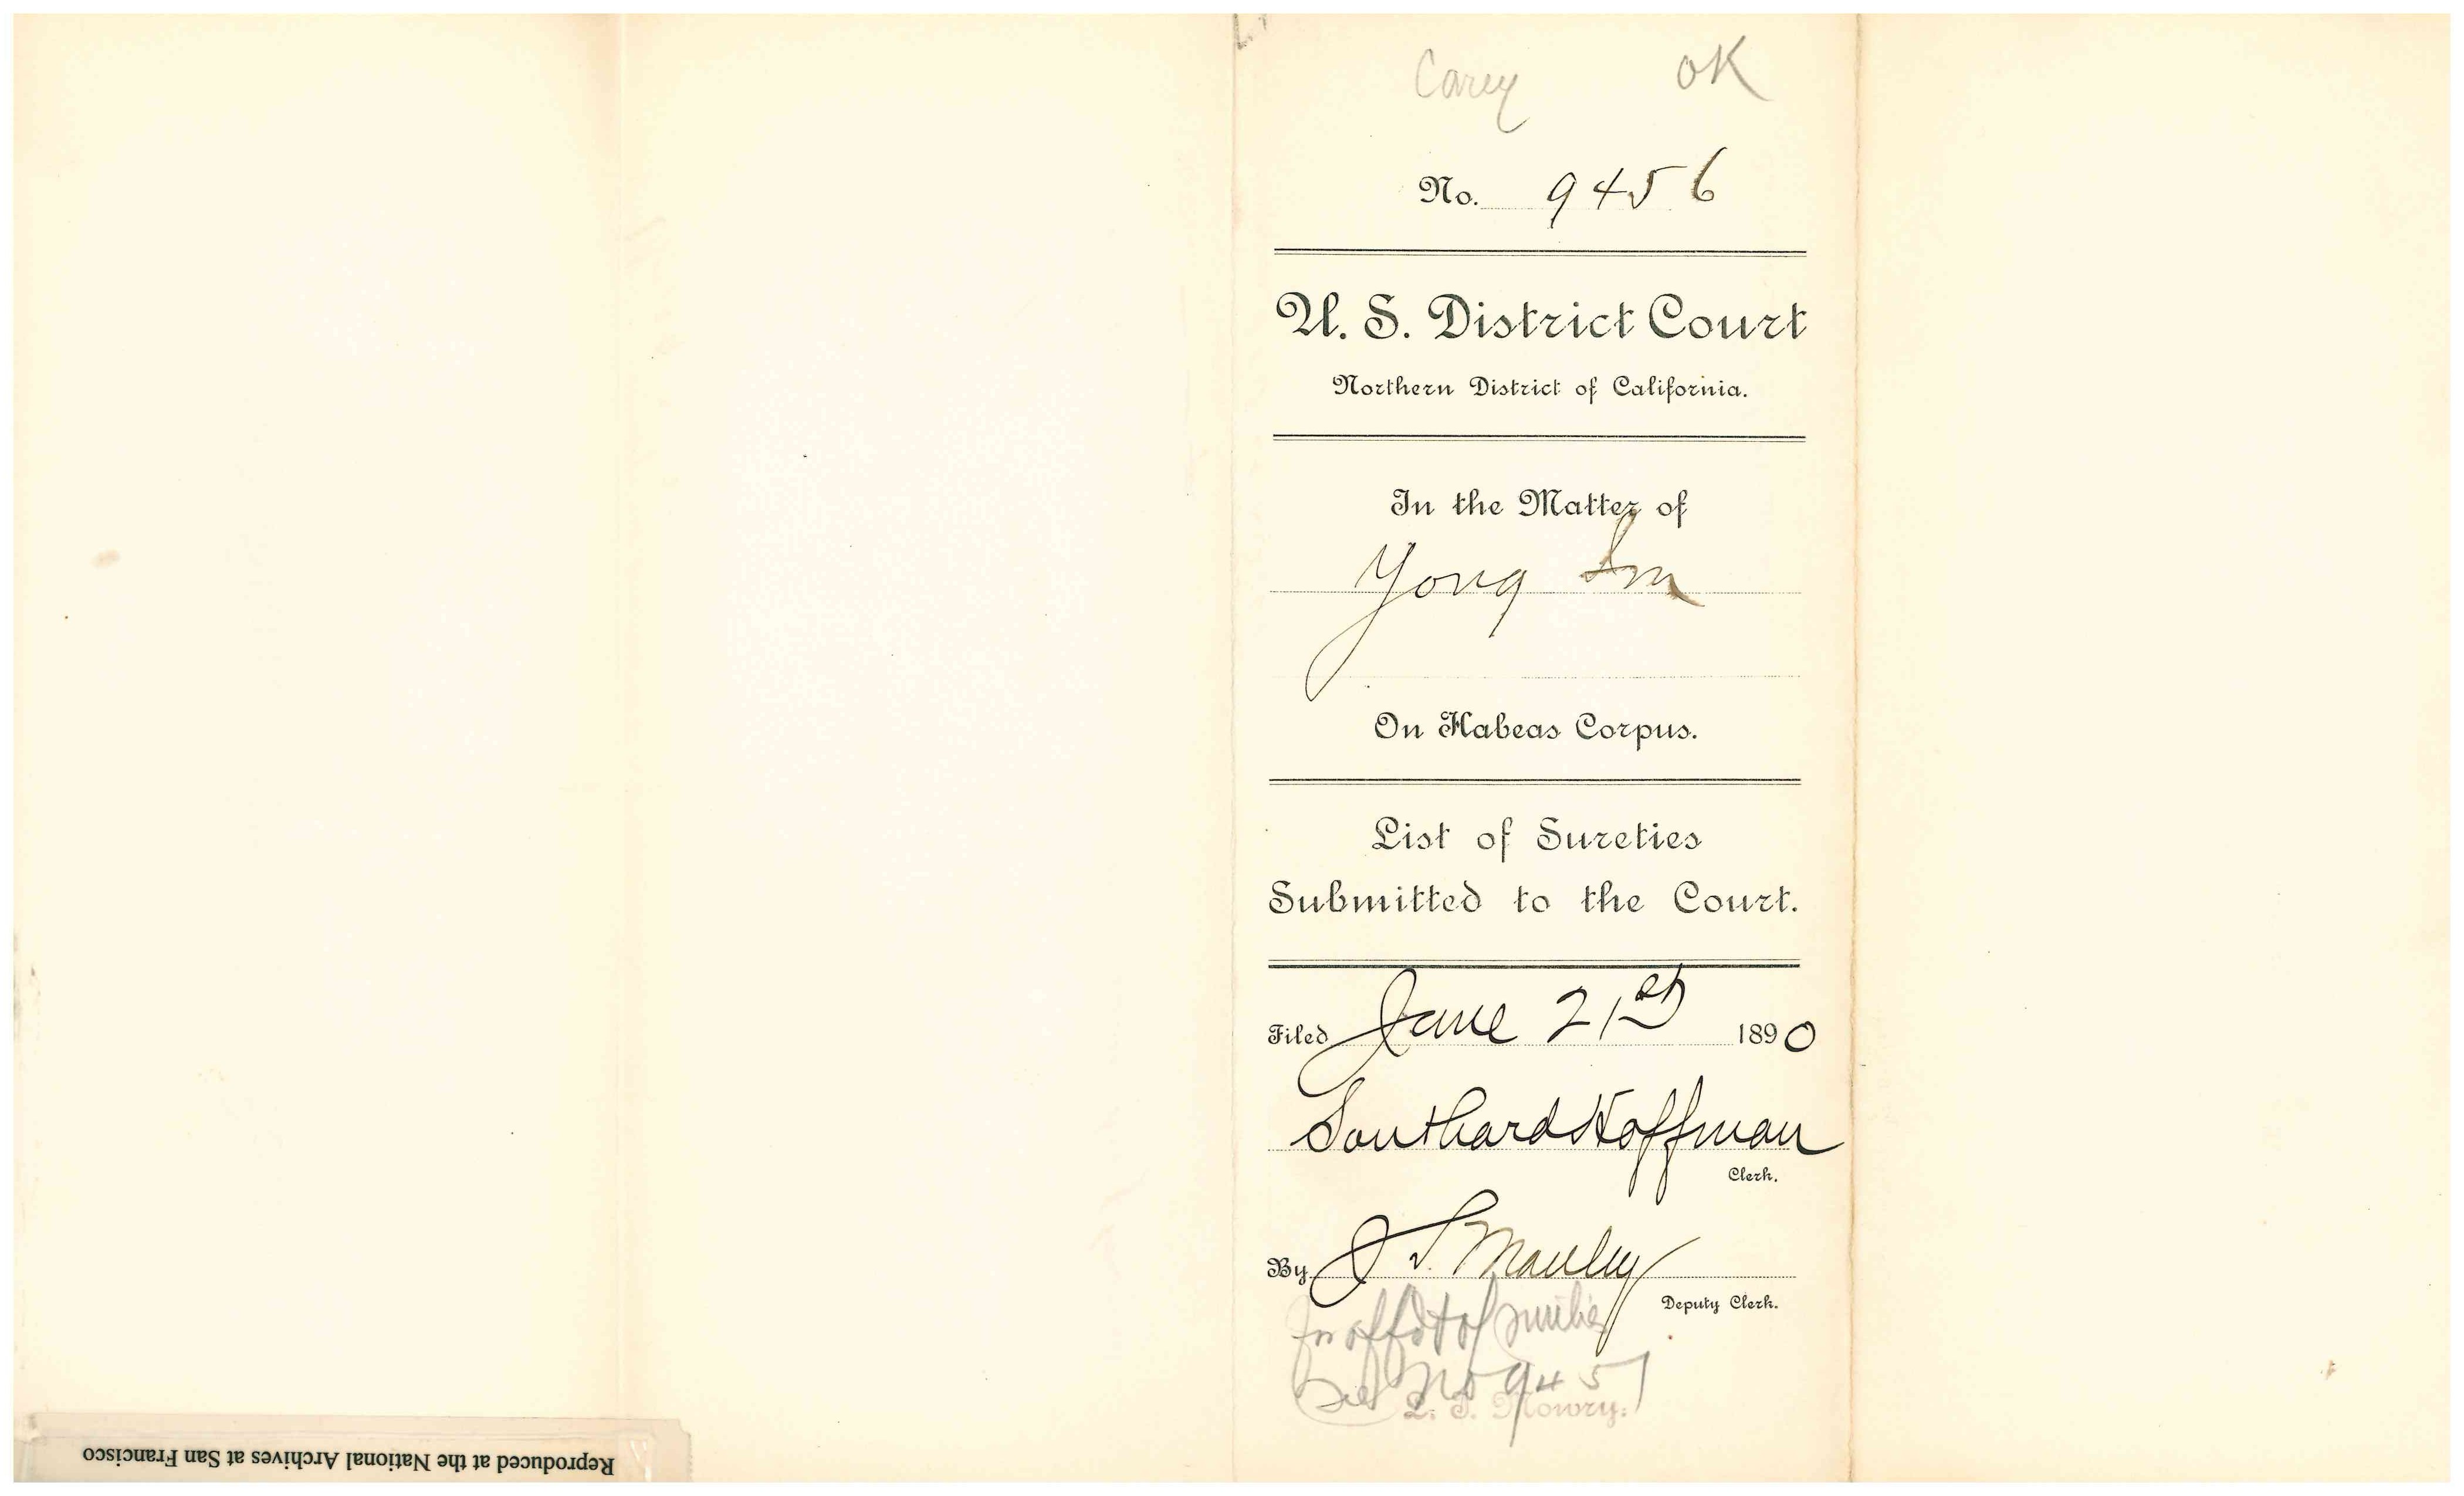 Carey OK
No. 9456
U. S. District Court
Northern District of California.
In the Matter of
Yong
On Habeas Corpus.
List of Sureties
Submitted to the Court.
Filed June 21st 1890
Southard Hoffman
Clerk.
By J. S. Manley
Deputy Clerk.
for affdt of sureties
see No 9457
Reproduced at the National Archives at San Francisco